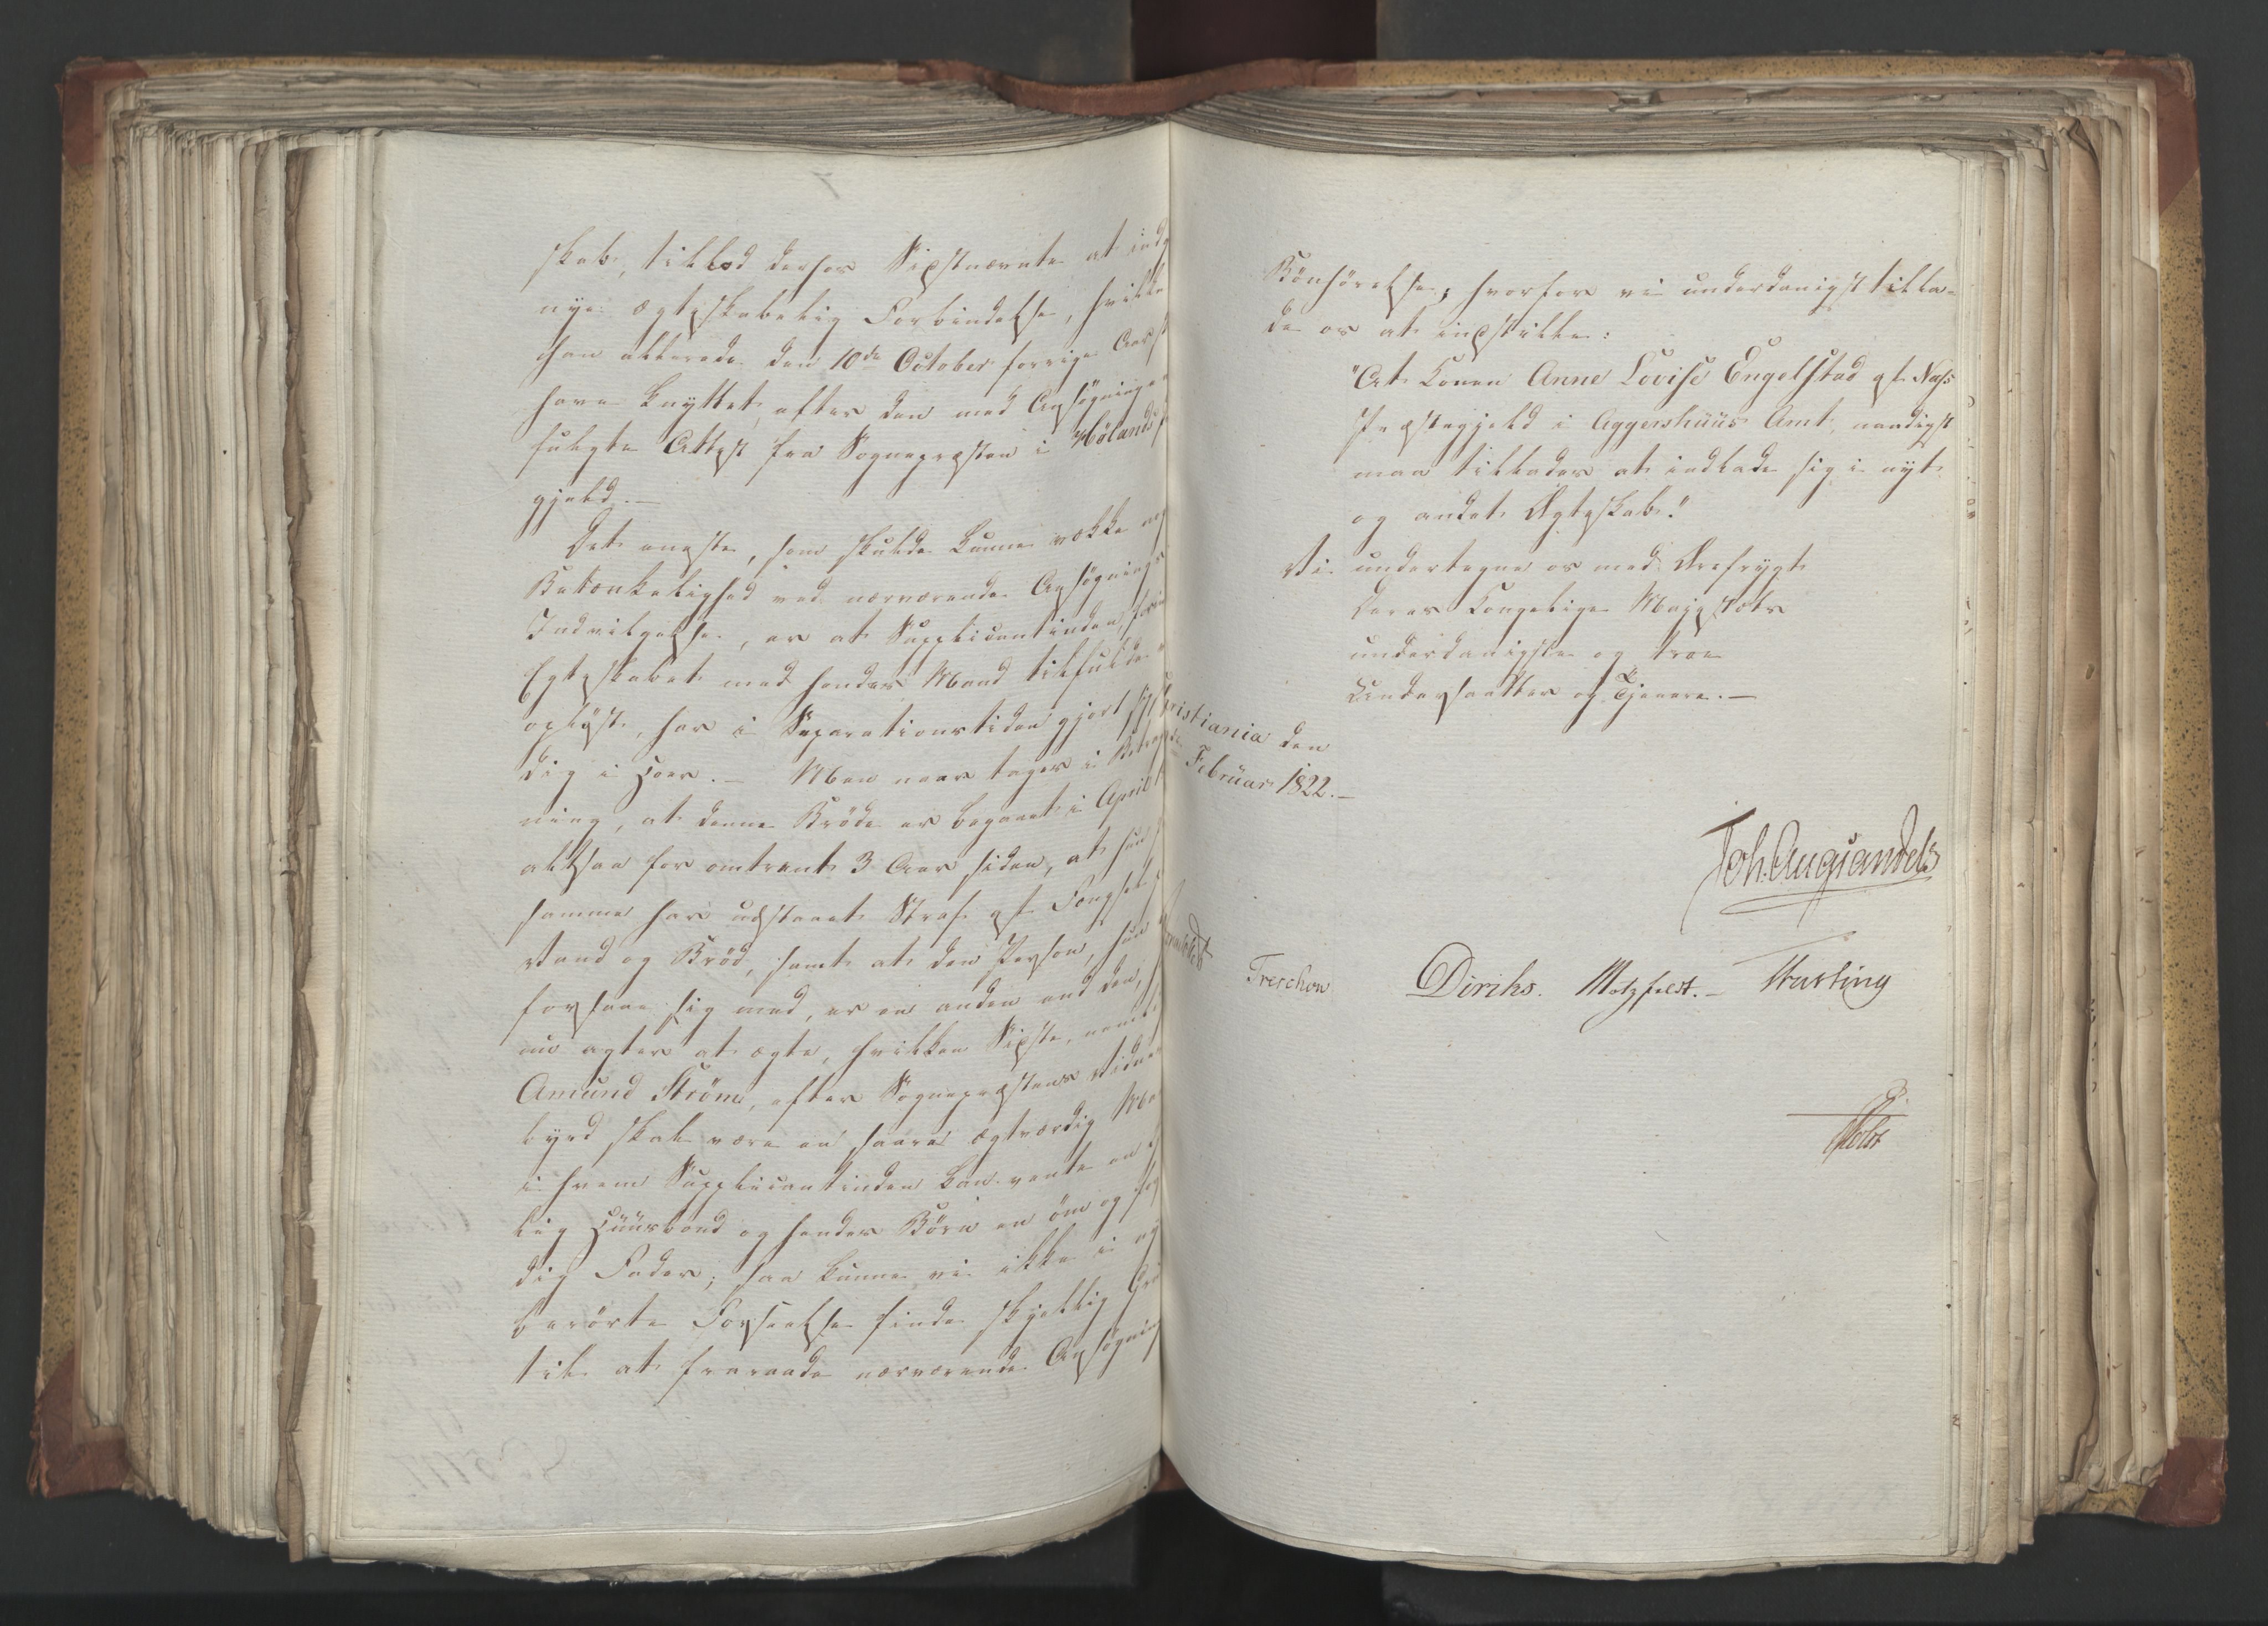 skab, tillod derfor Sidstnævnte at indg
nye ægteskabelig Forbindelse, hvilke
han allerede den 10de October forrige Aar s
have knyttet, efter den med Ansøgningen
fulgte Attest fra Sognepræsten i Hølands P
gjeld.—
Det eneste, som skulde kunne vække nog
Betænkelighed ved nærværende Ansøgnings
Indvilgelse, er at Supplicantinden, forin
Egteskabet med hendes Mand tilfulde
opløst, har i Separationstiden gjort sig
dig i Hoer.— Men naar tages i Betragt
ning, at denne Brøde er begaaet i April
altsaa for omtrent 3 Aar siden, at hun
samme har udstaaet Straf af Fængsel p
Vand og Brød, samt at den Person, hun
forsaae sig med, er en anden end den,
nu agter at ægte, hvilken Sidste, nemli
Amund Strøm, efter Sognepræstens Vidnes
byrd skal være en saare agtværdig Ma
i hvem Supplicantinden kan vente en
lig Huusbond og hendes Børn en øm og
dig Fader; saa kunne vi ikke i
berørte Forseelse finde skjellig Gru
til at fraraade nærværende Ansøgning
Bønhørelse; hvorfor vi underdanigst tilla-
de os at indstille:
"At Konen Anne Lovise Engelstad af Næs
Præstegjeld i Aggershuus Amt, naadigst
maa tillades at indlade sig i nyt
og andet Ægteskab."
Vi undertegne os med Ærefrygt
Deres Kongelige Majestæts
underdanigste og troe
Undersaatter og Tjenere.—
Christiania den
Februar 1822.—
Joh. Aug Sandels
Treschow Diriks. Motzfeldt.— Fasting
Holst